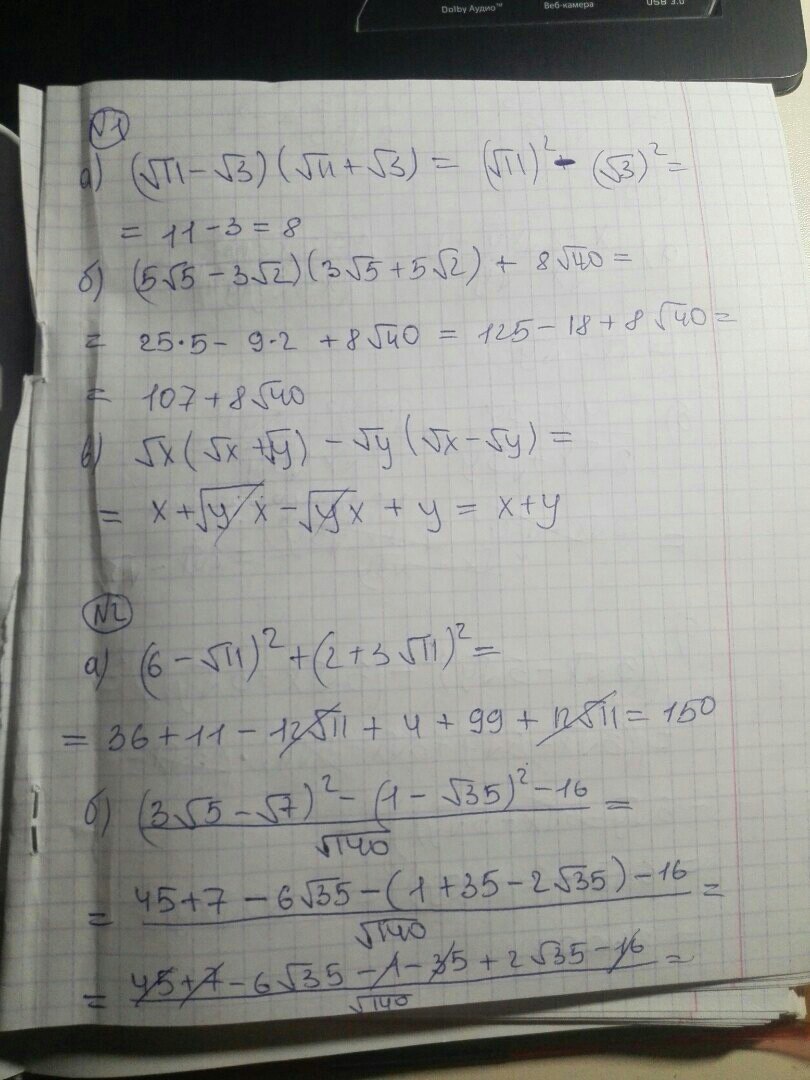 Dolby Аудио™ Веб-камера USB 3.0
№1
а) (√11 - √3)(√11 + √3) = (√11)² - (√3)² =
= 11 - 3 = 8
б) (5√5 - 3√2)(3√5 + 5√2) + 8√40 =
= 25·5 - 9·2 + 8√40 = 125 - 18 + 8√40 =
= 107 + 8√40
в) √x(√x + √y) - √y(√x - √y) =
= x + √y x - √y x + y = x + y
№2
а) (6 - √11)² + (2 + 3√11)² =
= 36 + 11 - 12√11 + 4 + 99 + 12√11 = 150
б) (3√5 - √7)² - (1 - √35)² - 16 =
√140
= 45 + 7 - 6√35 - (1 + 35 - 2√35) - 16 =
√140
= 45 + 7 - 6√35 - 1 - 35 + 2√35 - 16 =
√140